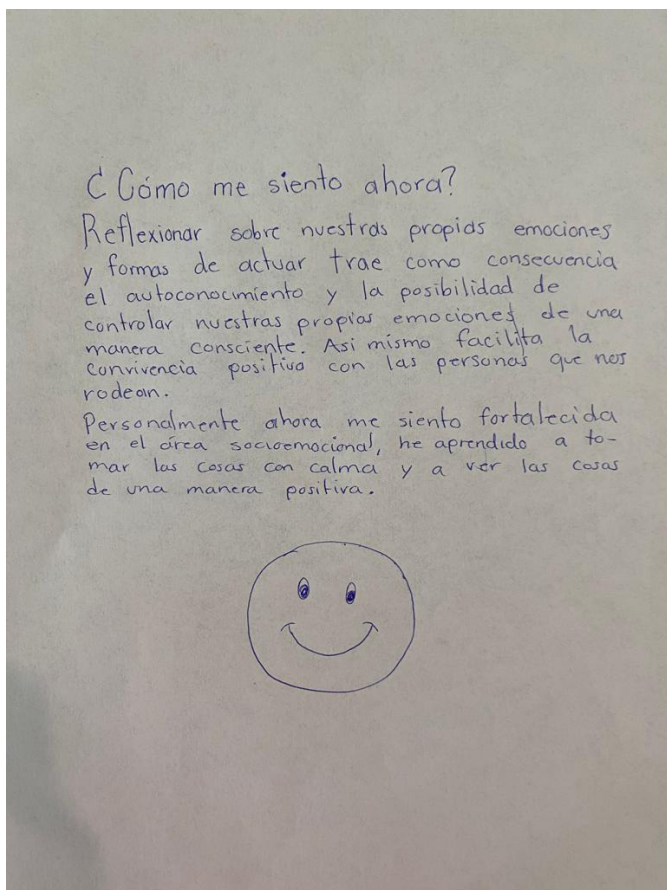 ¿Cómo me siento ahora?
Reflexionar sobre nuestras propias emociones
y formas de actuar trae como consecuencia
el autoconocimiento y la posibilidad de
controlar nuestras propias emociones de una
manera consciente. Asi mismo facilita la
convivencia positiva con las personas que nos
rodean.
Personalmente ahora me siento fortalecida
en el área socioemocional, he aprendido a to-
mar las cosas con calma y a ver las cosas
de una manera positiva.